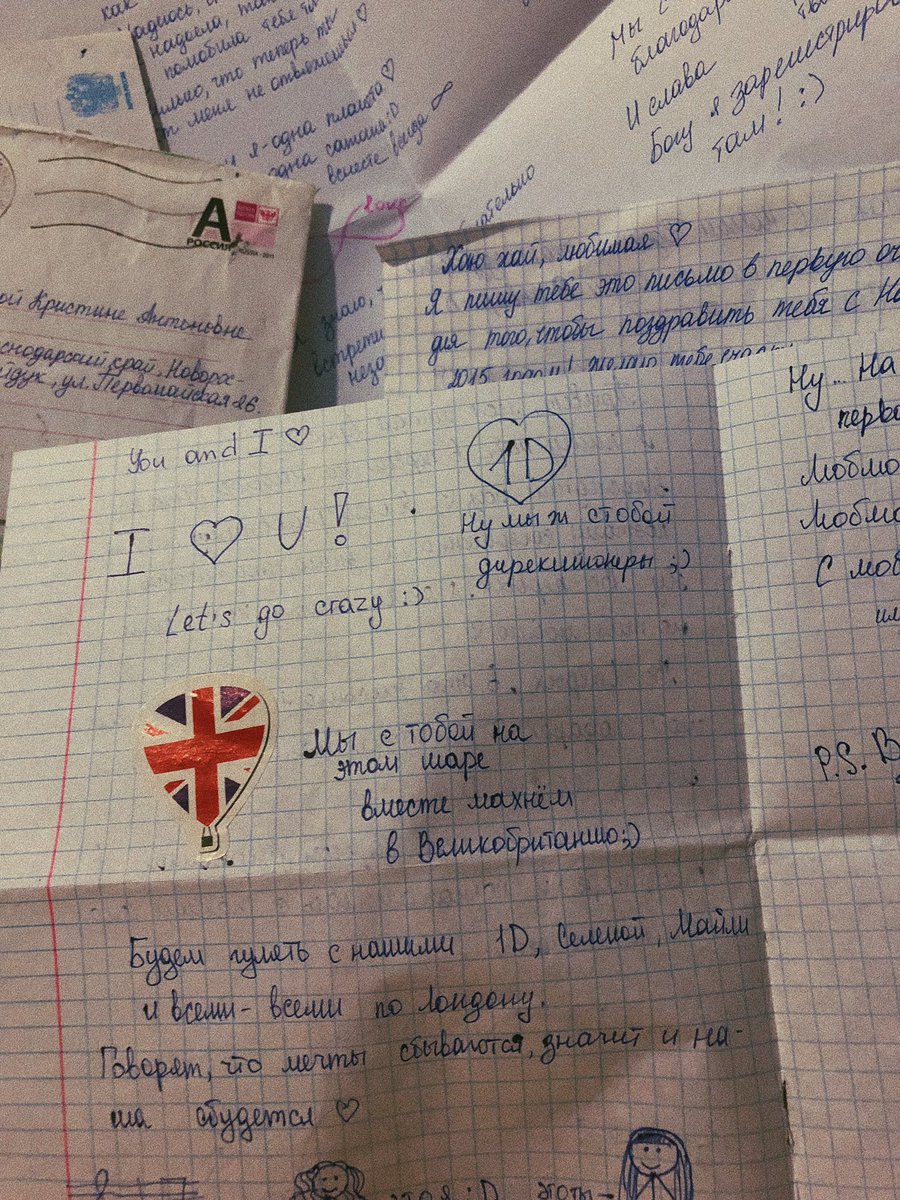 как
надоела, так
полюбила тебе
что теперь ты
меня не отвяжешься ♡
я - одна планета ♡
одна сатана :D
вместе всегда ∞
love
Мы с
благодар
И слава
Богу я зарегистриров
там! :)
A
РОССИЯ
ой Кристине Антоньевне
снодарский край, Новорос-
ул. Первомайская 26.
знаю,
встрети
Хою хай, любимая ♡
Я пишу тебе это письмо в первую оч
для того, чтобы поздравить тебя с Но
2015 годом! Желаю тебе
Ну... На
перво
Люблю
Люблю
С люб
P.S. В
You and I ♡
1D
I ♡ U !
Ну мы ж с тобой
дирекшионеры ;)
Let's go crazy :)
Мы с тобой на
этом шаре
вместе махнём
в Великобританию ;)
Будем гулять с нашими 1D, Селеной, Майли
и всеми-всеми по Лондону.
Говорят, что мечты сбываются, значит и на-
ша сбудется ♡
это я :D это ты -